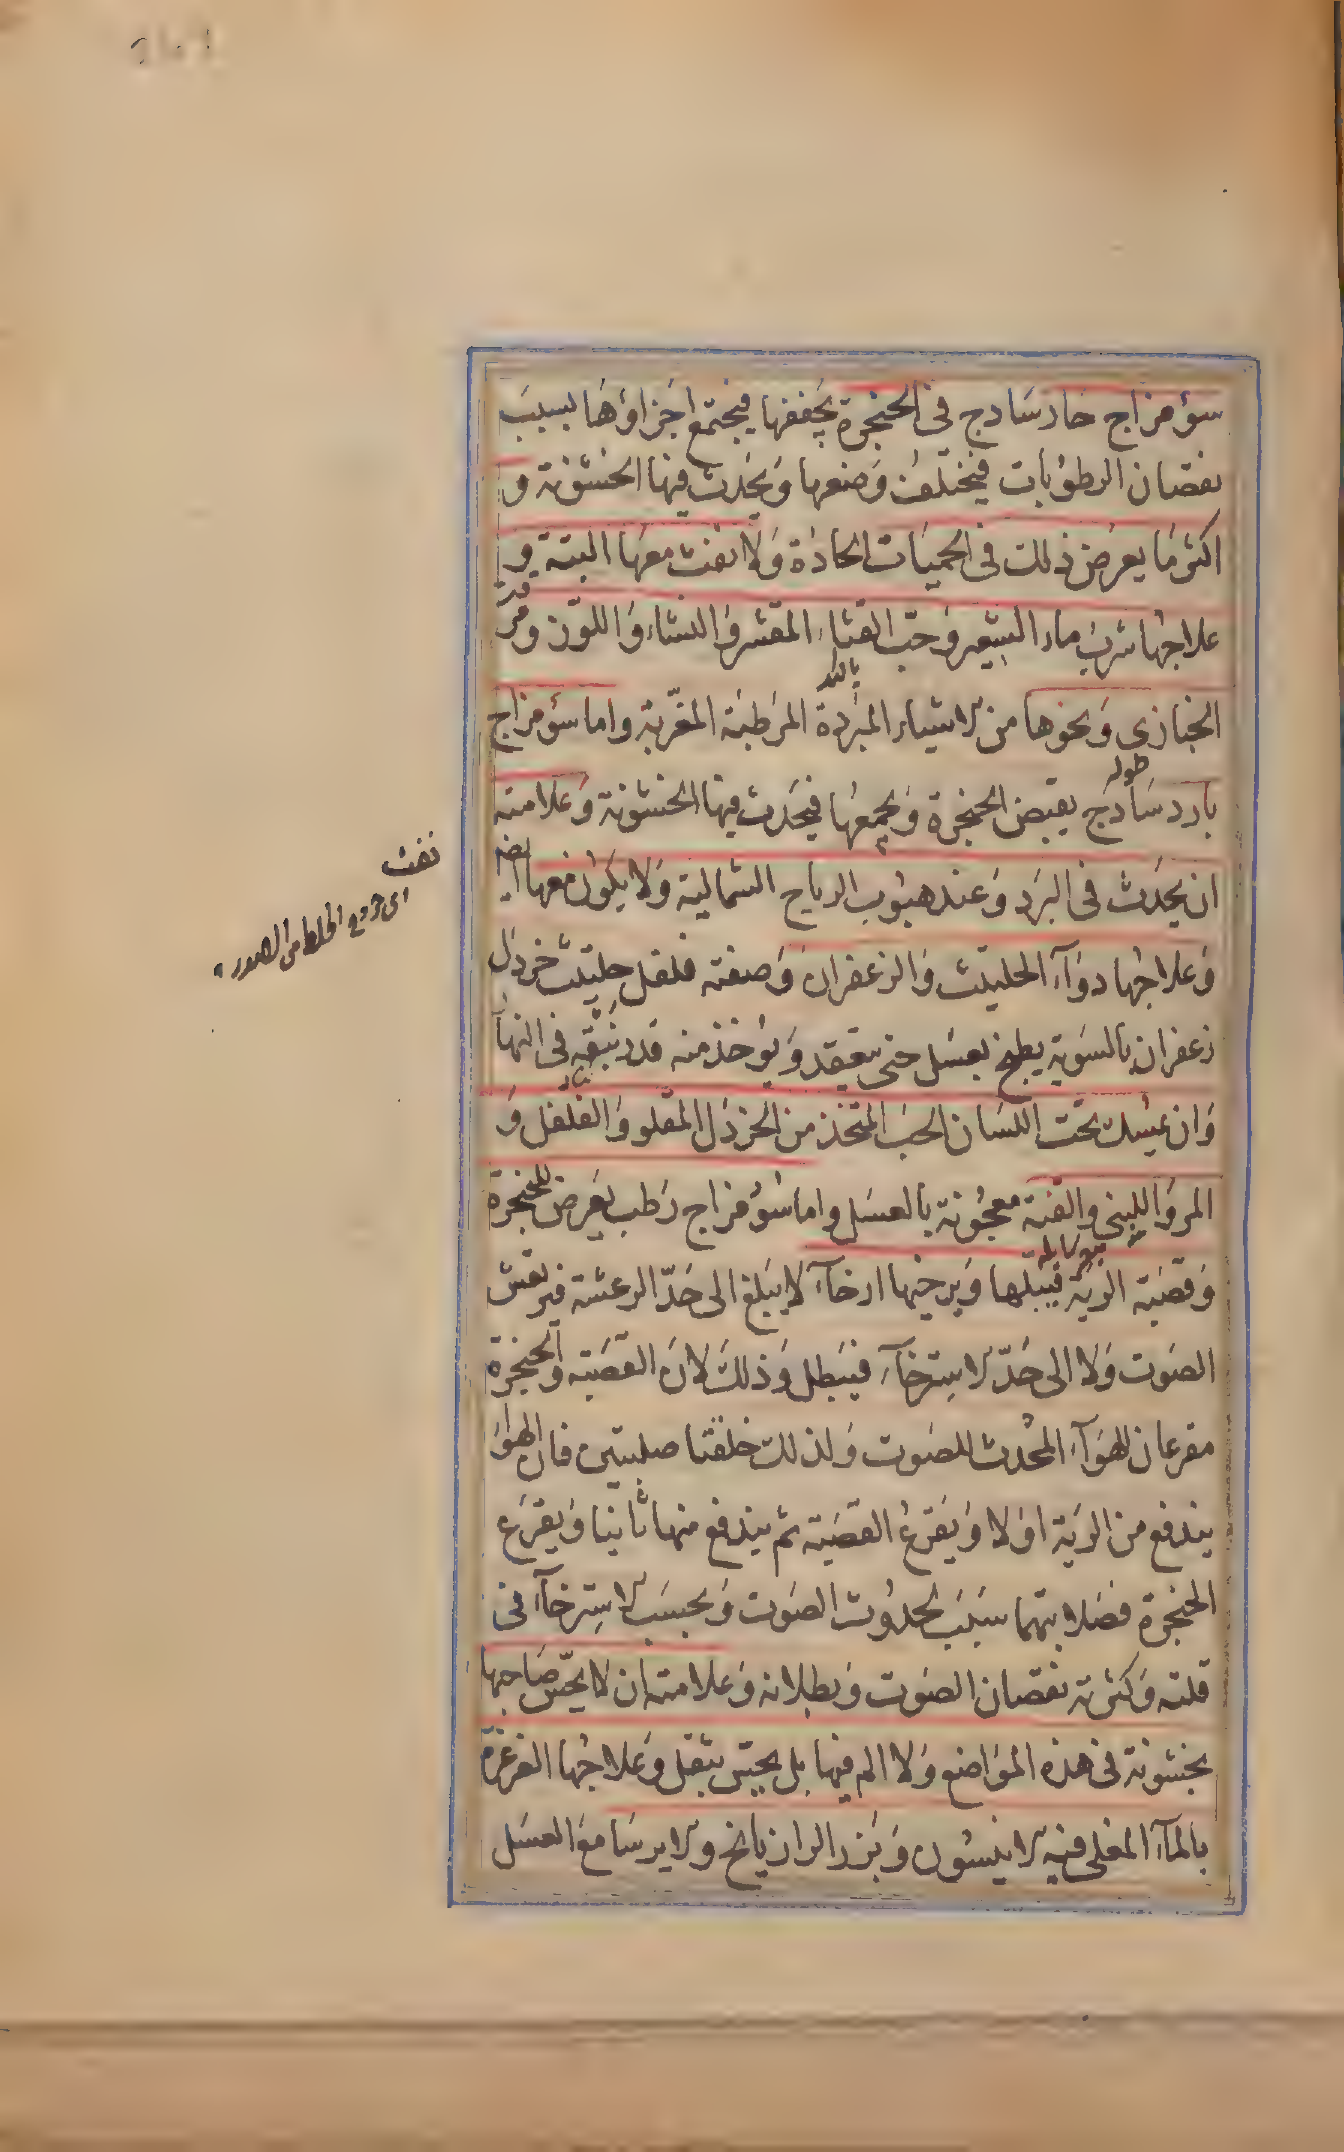 سؤ مزاج حار سادج فى الحنجرة يجففها فيجتمع اجزاؤها بسبب
نقصان الرطوبات فيختلف وضعها ويحدث فيها الخشونة و
اكثر ما يعرض ذلك فى الحميات الحادة ولا نفث معها البتة و
علاجها شرب ماء الشعير وحب القثاء المقشر والنشاء واللوز ومر
الخبازى ونحوها من الاشياء المبردة المرطبة المغرية واما سؤ مزاج
بارد سادج يقبض الحنجرة ويجمعها فيحدث فيها الخشونة وعلامته
ان يحدث فى البرد وعند هبوب الرياح الشمالية ولا يكون معها ايضا
نفث
اى خروج الخلط من الصدر
وعلاجها دوآء الحليتث والزعفران وصفته فلفل حليتث خردل
زعفران بالسوية يطبخ بعسل حتى ينعقد ويؤخذ منه قدر نبقه فى النهار
وان يمسك تحت اللسان الحب المتخذ من الخردل المقلو والفلفل و
المر واللبنى والقنة معجونة بالعسل واما سؤ مزاج رطب يعرض للحنجرة
وقصبة الرية فيبلها ويرخيها ارخاء لا يبلغ الى حد الرعشة فيرتعش
الصوت ولا الى حد الاسترخآء فيبطل وذلك لان القصبة والحنجرة
مقرعان للهوآء المحدث للصوت ولذلك خلقتا صلبتين فان الهواء
يندفع من الرية اولا ويقرع القصبة ثم يندفع منها ثانيا ويقرع
الحنجرة فصلابتهما سبب لحدوث الصوت وبحسب الاسترخآء فى
قلته وكثرته نقصان الصوت وبطلانه وعلامته ان لا يحس صاحبها
بخشونة فى هذه المواضع ولا الم فيها بل يحس بثقل وعلاجها الغرغرة
بالمآء المغلى فيه الانيسون وبزر الرازيانج والايرسا مع العسل